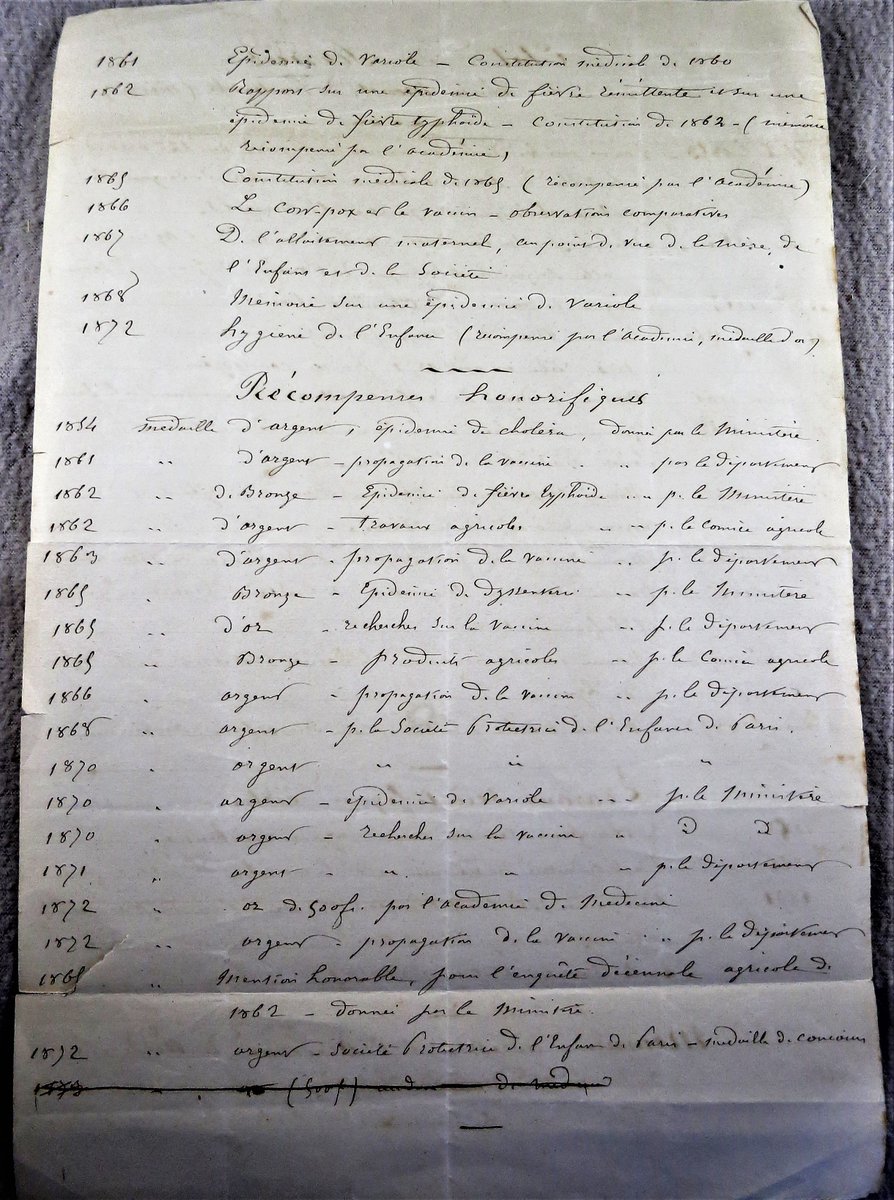 1861 Epidemie de Variole - Constitution médical de 1860
1862 Rapport sur une épidemie de fièvre rémittente et sur une
épidemie de fièvre typhoïde - Constitution de 1862 - (mémoire
récompensé par l'académie)
1865 Constitution médicale de 1865 (récompensé par l'académie)
1866 Le Cow-pox et le vaccin - observations comparatives
1867 De l'allaitement maternel, au point de vue de la mère, de
l'Enfant et de la Société
1868 Mémoire sur une épidemie de Variole
1872 hygiene de l'Enfance (récompensé par l'Academie, medaille d'or)
Récompenses honorifiques
1854 medaille d'argent, épidemie de choléra, donné par le Ministère.
1861 " d'argent - propagation de la vaccine " " par le département
1862 " de Bronze - Epidemie de fièvre typhoïde " " p. le Ministère
1862 " d'argent - travaux agricoles " " p. le comice agricole
1863 " d'argent - propagation de la vaccine " p. le département
1865 " Bronze - Epidemie de dyssenterie " p. le Ministère
1865 " d'or - recherches sur la vaccine " p. le département
1865 " Bronze - produits agricoles " p. le comice agricole
1866 " argent - propagation de la vaccine " p. le département
1868 " argent - p. la Société Protectrice de l'Enfance de Paris.
1870 " argent " " "
1870 " argent - épidemie de variole " " p. le Ministère
1870 " argent - recherches sur la vaccine "
1871 " argent - " " " p. le département
1872 " or de 500f. par l'academie de Medecine
1872 " argent - propagation de la vaccine " p. le département
1865 " Mention honorable, pour l'enquête décennale agricole de
1862 - donnée par le Ministre.
1872 " argent - Société Protectrice de l'Enfance de Paris - medaille de concours
(500f)